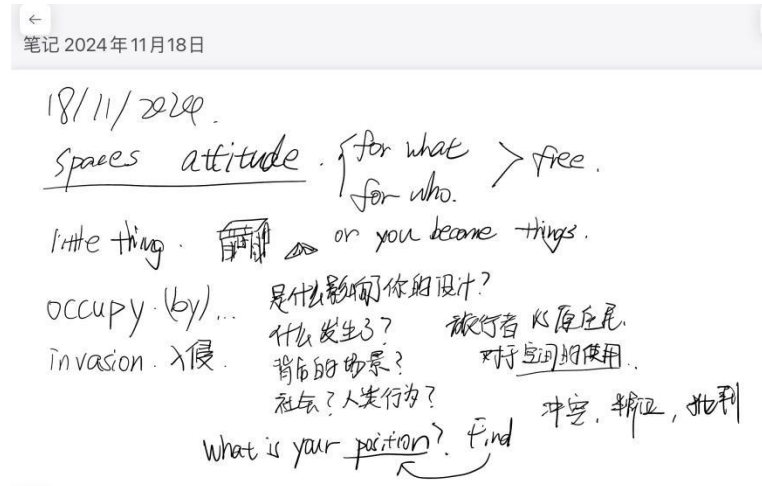 笔记 2024年11月18日
18/11/2024.
spaces attitude. for what
for who. > free.
little thing. or you become things.
occupy.(by)... 是什么影响了你的设计?
什么发生了? 旅行者 VS 原住民.
invasion. 入侵. 背后的场景? 对于空间的使用..
社会? 人类行为? 冲突, 批判
What is your position? Find